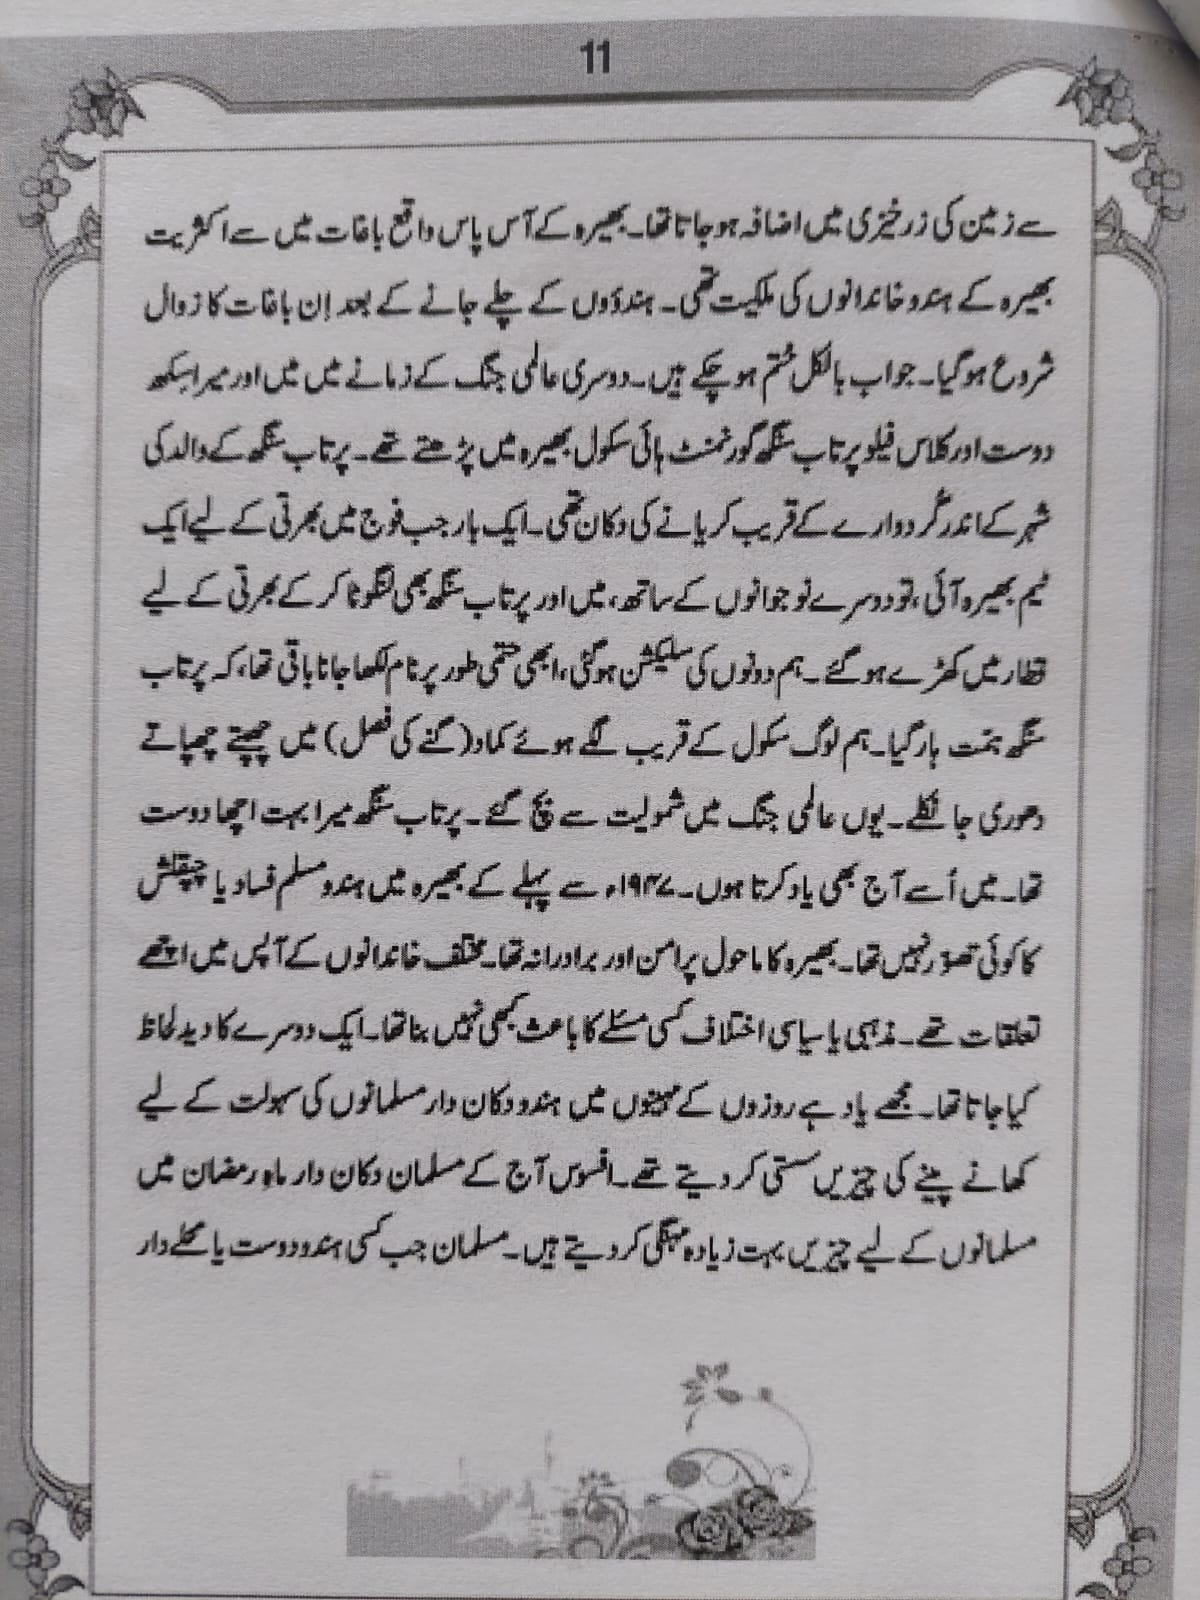 11
سے زمین کی زرخیزی میں اضافہ ہو جاتا تھا۔ بھیرہ کے آس پاس واقع باغات میں سے اکثریت
بھیرہ کے ہندو خاندانوں کی ملکیت تھی۔ ہندوؤں کے چلے جانے کے بعد اِن باغات کا زوال
شروع ہو گیا۔ جو اب بالکل ختم ہو چکے ہیں۔ دوسری عالمی جنگ کے زمانے میں میں اور میرا سِکھ
دوست اور کلاس فیلو پرتاب سنگھ گورنمنٹ ہائی سکول بھیرہ میں پڑھتے تھے۔ پرتاب سنگھ کے والد کی
شہر کے اندر گُردوارے کے قریب کریانے کی دکان تھی۔ ایک بار جب فوج میں بھرتی کے لیے ایک
ٹیم بھیرہ آئی، تو دوسرے نوجوانوں کے ساتھ، میں اور پرتاب سنگھ بھی لنگوٹا کر کے بھرتی کے لیے
قطار میں کھڑے ہو گئے۔ ہم دونوں کی سلیکشن ہو گئی، ابھی حتمی طور پر نام لکھا جانا باقی تھا، کہ پرتاب
سنگھ ہمت ہار گیا۔ ہم لوگ سکول کے قریب لگے ہوئے کماد (گنے کی فصل) میں چھپتے چھپاتے
دھوری جا نکلے۔ یوں عالمی جنگ میں شمولیت سے بچ گئے۔ پرتاب سنگھ میرا بہت اچھا دوست
تھا۔ میں اُسے آج بھی یاد کرتا ہوں۔ ۱۹۴۷ء سے پہلے کے بھیرہ میں ہندو مسلم فساد یا چپقلش
کا کوئی تصوّر نہیں تھا۔ بھیرہ کا ماحول پرامن اور برادرانہ تھا۔ مختلف خاندانوں کے آپس میں اچھے
تعلقات تھے۔ مذہبی یا سیاسی اختلاف کسی مسئلے کا باعث کبھی نہیں بنا تھا۔ ایک دوسرے کا دید لحاظ
کیا جاتا تھا۔ مجھے یاد ہے روزوں کے مہینوں میں ہندو دکان دار مسلمانوں کی سہولت کے لیے
کھانے پینے کی چیزیں سستی کر دیتے تھے۔ افسوس آج کے مسلمان دکان دار ماہِ رمضان میں
مسلمانوں کے لیے چیزیں بہت زیادہ مہنگی کر دیتے ہیں۔ مسلمان جب کسی ہندو دوست یا محلے دار